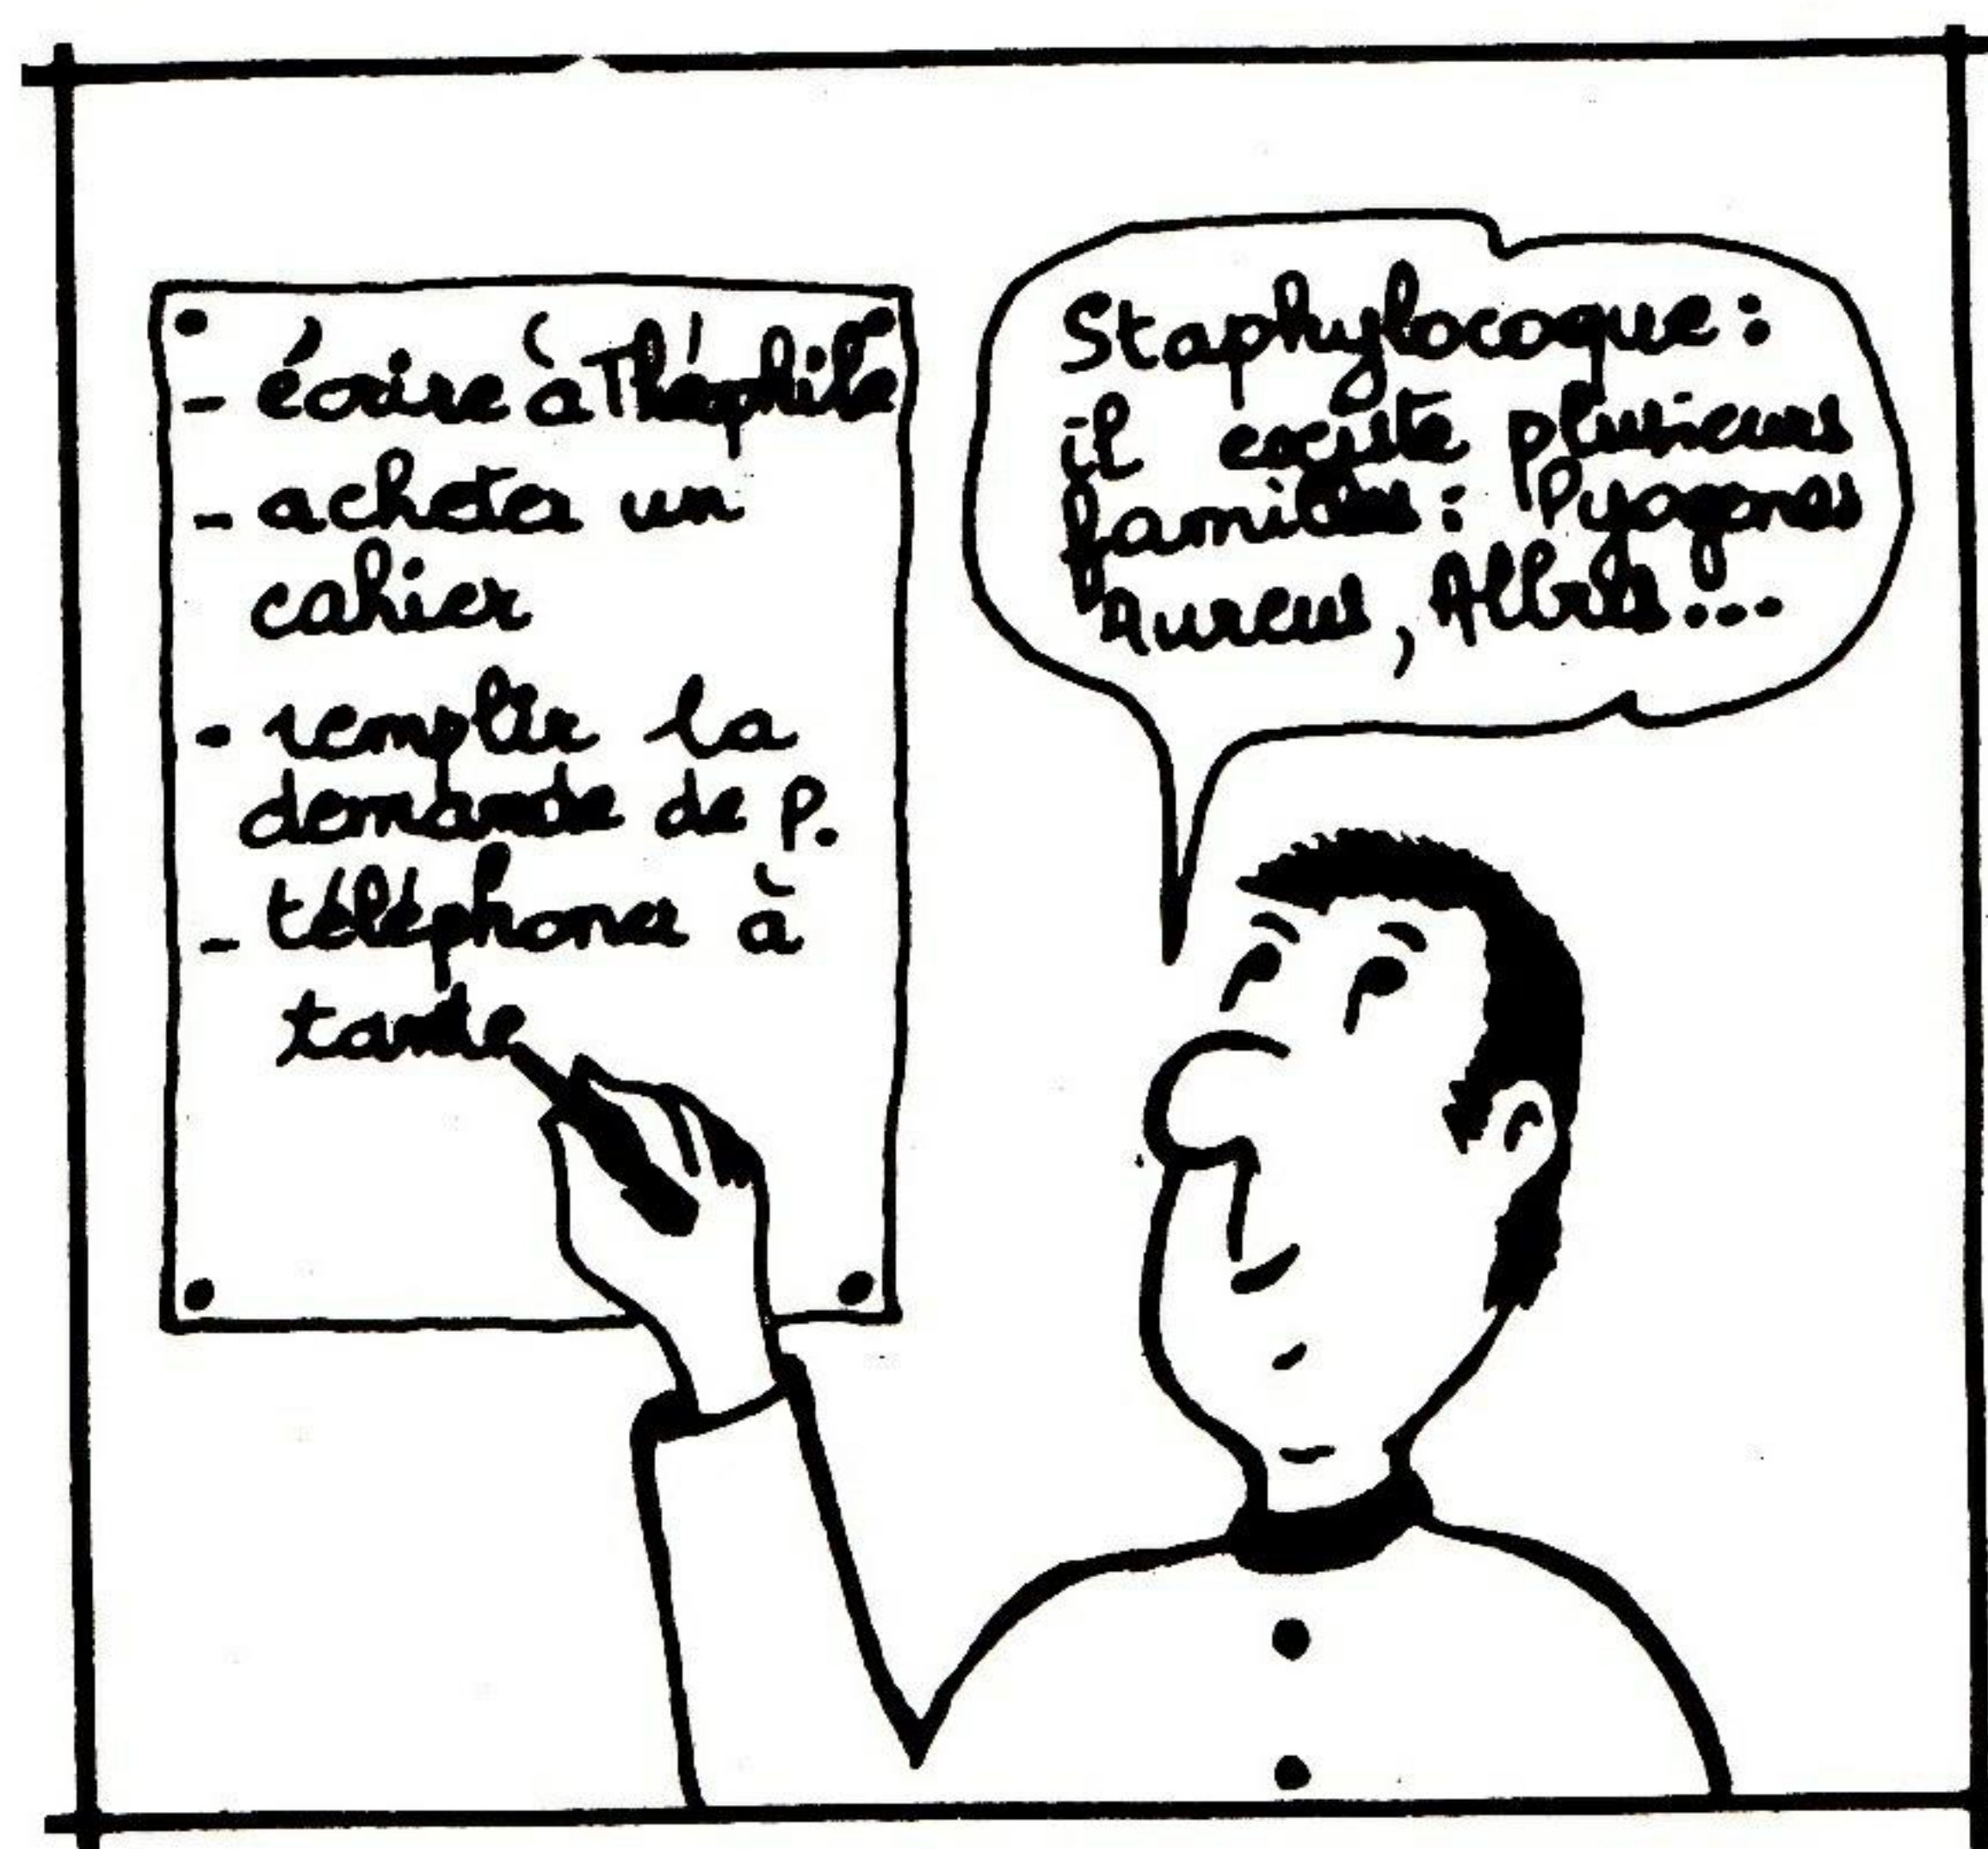 - écrire à Théophile
- acheter un
cahier
- remplir la
demande de P.
- téléphoner à
tante
Staphylocoque:
il existe plusieurs
familles: Pyogenes
Aureus, Albus...